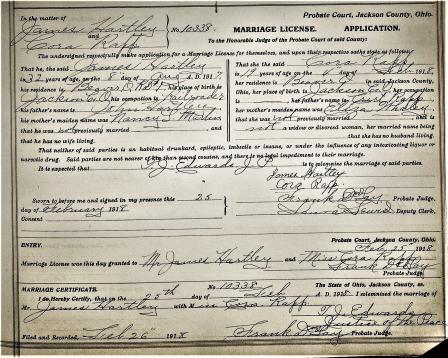 Probate Court, Jackson County, Ohio.
In the matter of
James Hartley
and
Cora Rapp
No 10338
MARRIAGE LICENSE. APPLICATION.
To the Honorable Judge of the Probate Court of said County:
The undersigned respectfully make application for a Marriage License for themselves, and upon their respective oaths state as follows:
That he, the said James Hartley
is 22 years of age, on the 8 day of Aug A.D. 1917,
his residence is Beaver
his place of birth is
Jackson Co. O his occupation is
his father's name is
his mother's maiden name was Nancy J. Martin
that he was not previously married
and that he has no wife living.
That she the said Cora Rapp
is 19 years of age on the 4 day of
her residence is Beaver O. in said Jackson County,
Ohio, her place of birth is Jackson Co. O her occupation
is her father's name is Rapp
her mother's maiden name was
that she was not previously married and is
not a widow or divorced woman, her married name being
and that she has no husband living.
That neither of said parties is an habitual drunkard, epileptic, imbecile or insane, or under the influence of any intoxicating liquor or
narcotic drug. Said parties are not nearer of kin than second cousins, and there is no legal impediment to their marriage.
It is expected that T. J. Edwards J. P. is to solemnize the marriage of said parties.
James Hartley
Cora Rapp
Sworn to before me and signed in my presence this 25
day of February 1918
Frank Probate Judge.
Deputy Clerk.
Consent
ENTRY.
Probate Court, Jackson County, Ohio.
Feb 25 1918
Marriage License was this day granted to Mr James Hartley and Miss Cora Rapp
Frank Probate Judge
MARRIAGE CERTIFICATE. No 10338 The State of Ohio, Jackson County, ss.
I do Hereby Certify, that on the 25th day of Feb A. D. 1918, I solemnized the marriage of
Mr. James Hartley with Miss Cora Rapp
T. J. Edwards
Justice of the Peace
Filed and Recorded, Feb 26" 1918
Frank Probate Judge.